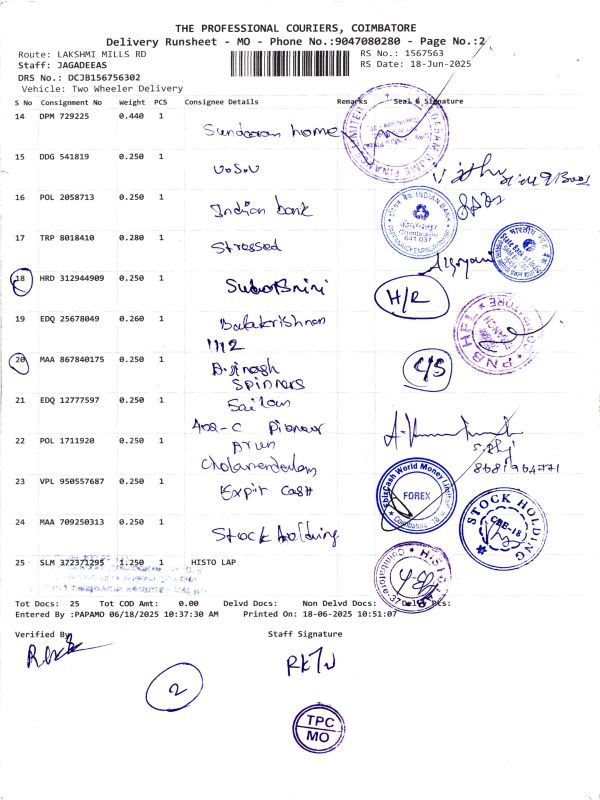 THE PROFESSIONAL COURIERS, COIMBATORE
Delivery Runsheet - MO - Phone No.:9047080280 - Page No.:2
Route: LAKSHMI MILLS RD
RS No.: 1567563
Staff: JAGADEEAS
RS Date: 18-Jun-2025
DRS No.: DCJB156756302
Vehicle: Two Wheeler Delivery
S No Consignment No Weight PCS Consignee Details Remarks Seal & Signature
14 DPM 729225 0.440 1
Sundaram home
15 DDG 541819 0.250 1
U.S.U
16 POL 2058713 0.250 1
Indian bank
INDIAN BANK
Coimbatore
641 037
17 TRP 8018410 0.280 1
Stressed
18 HRD 312944909 0.250 1
H/R
19 EDQ 25678049 0.260 1
Balakrishnan
1112
PNBHFL
20 MAA 867840175 0.250 1
Avinash
Spinners
C/S
21 EDQ 12777597 0.250 1
402-C Pioneer
22 POL 1711920 0.250 1
Arun
23 VPL 950557687 0.250 1
Expit Cash
EbixCash World Money Limited
FOREX
24 MAA 709250313 0.250 1
Stock holding
STOCK HOLDING
CBE-18
25 SLM 372371295 1.250 1 HISTO LAP
Tot Docs: 25 Tot COD Amt: 0.00 Delvd Docs: Non Delvd Docs: Delvd Wts:
Entered By :PAPAMO 06/18/2025 10:37:30 AM Printed On: 18-06-2025 10:51:07
Verified By
Staff Signature
2
TPC
MO